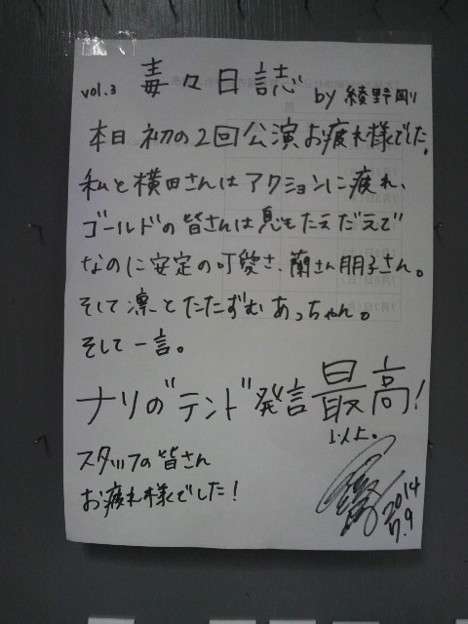 vol.3 毒々日誌 by 綾野剛
本日初の2回公演お疲れ様でした。
私と横田さんはアクションに疲れ、
ゴールドの皆さんは息もたえだえで
なのに安定の可愛さ、蘭さん朋子さん。
そして凛とたたずむあっちゃん。
そして一言。
ナリの"テンド"発言最高!
以上。
スタッフの皆さん
お疲れ様でした!
2014
7.9